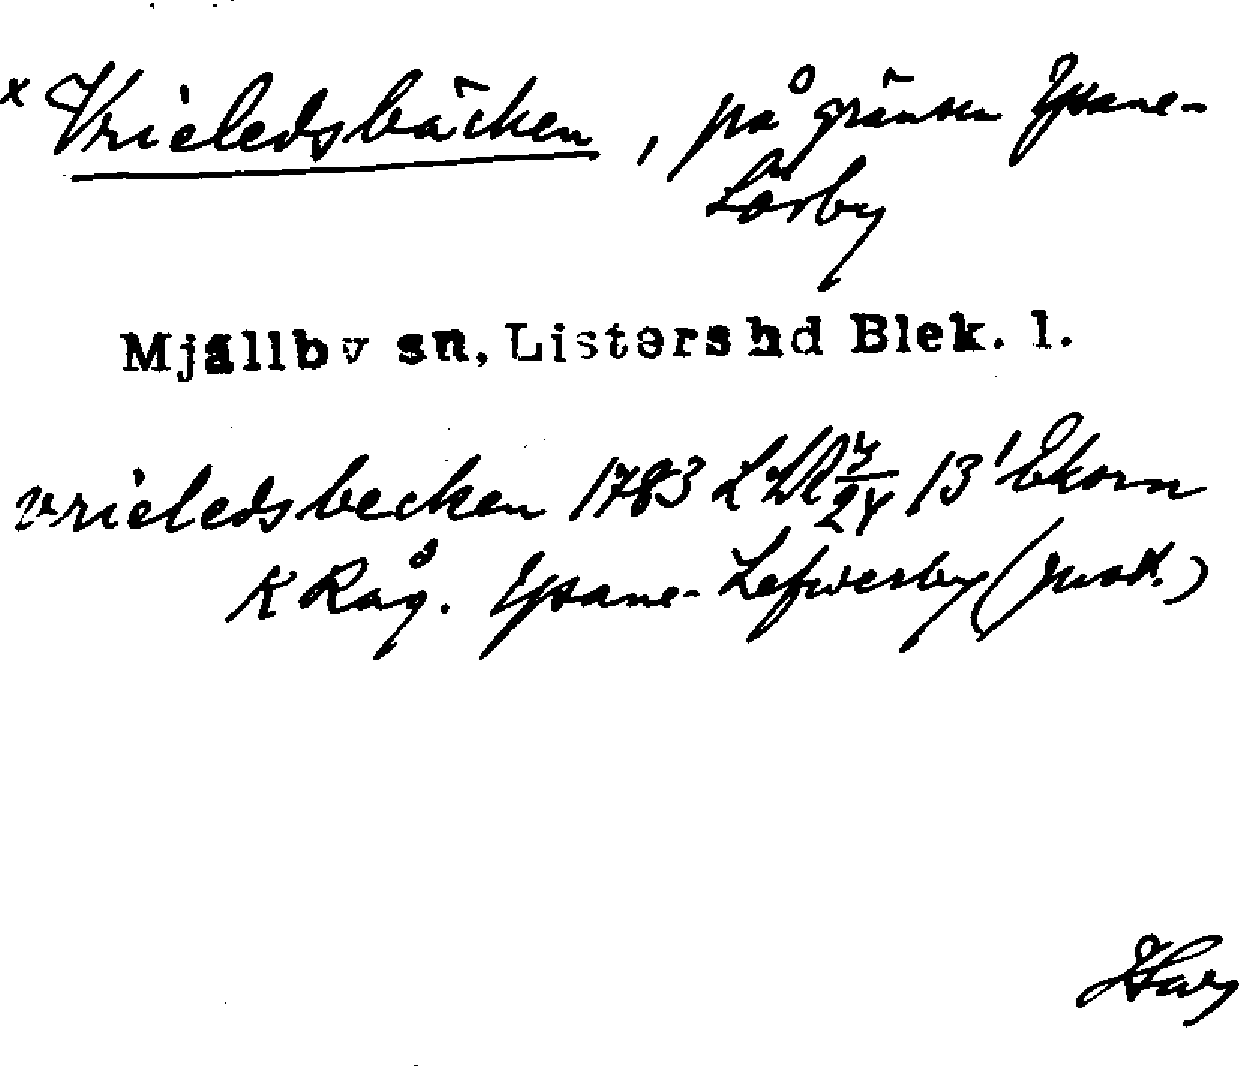 x Vrieledsbäcken, på gränsen Ysane-
Lörby
Mjällby sn, Listers hd Blek. l.
vrieledsbecken 1783 LSA 13' Ekorn
K Råg. Ysane-Lefwerby (prot.)